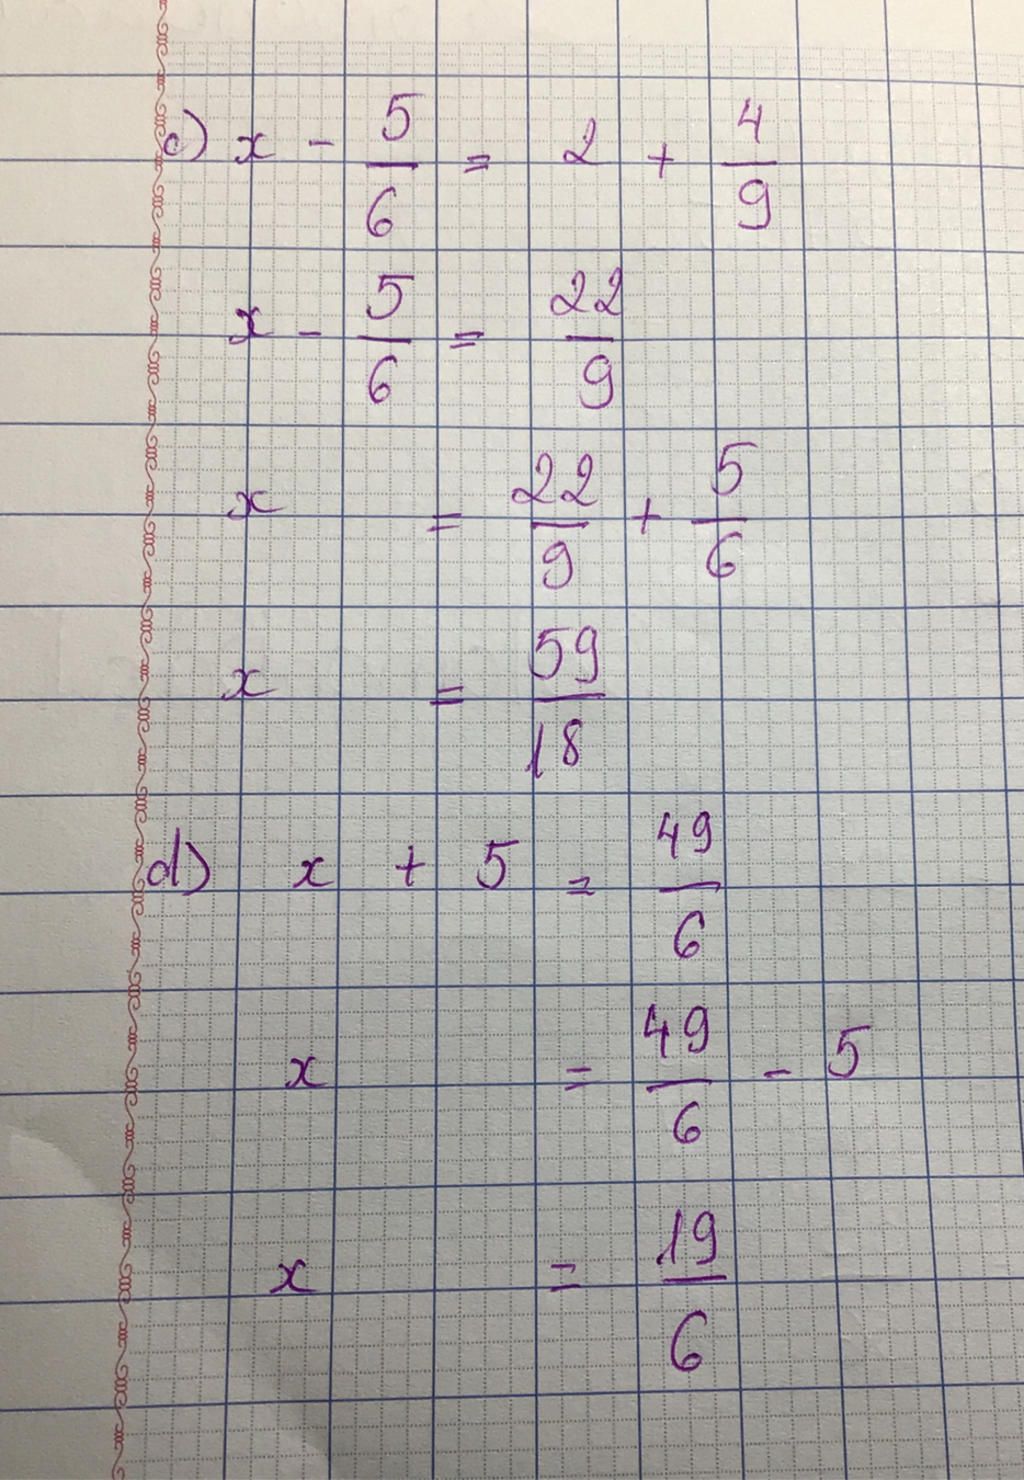 c) x - 5/6 = 2 + 4/9
x - 5/6 = 22/9
x = 22/9 + 5/6
x = 59/18
d) x + 5 = 49/6
x = 49/6 - 5
x = 19/6